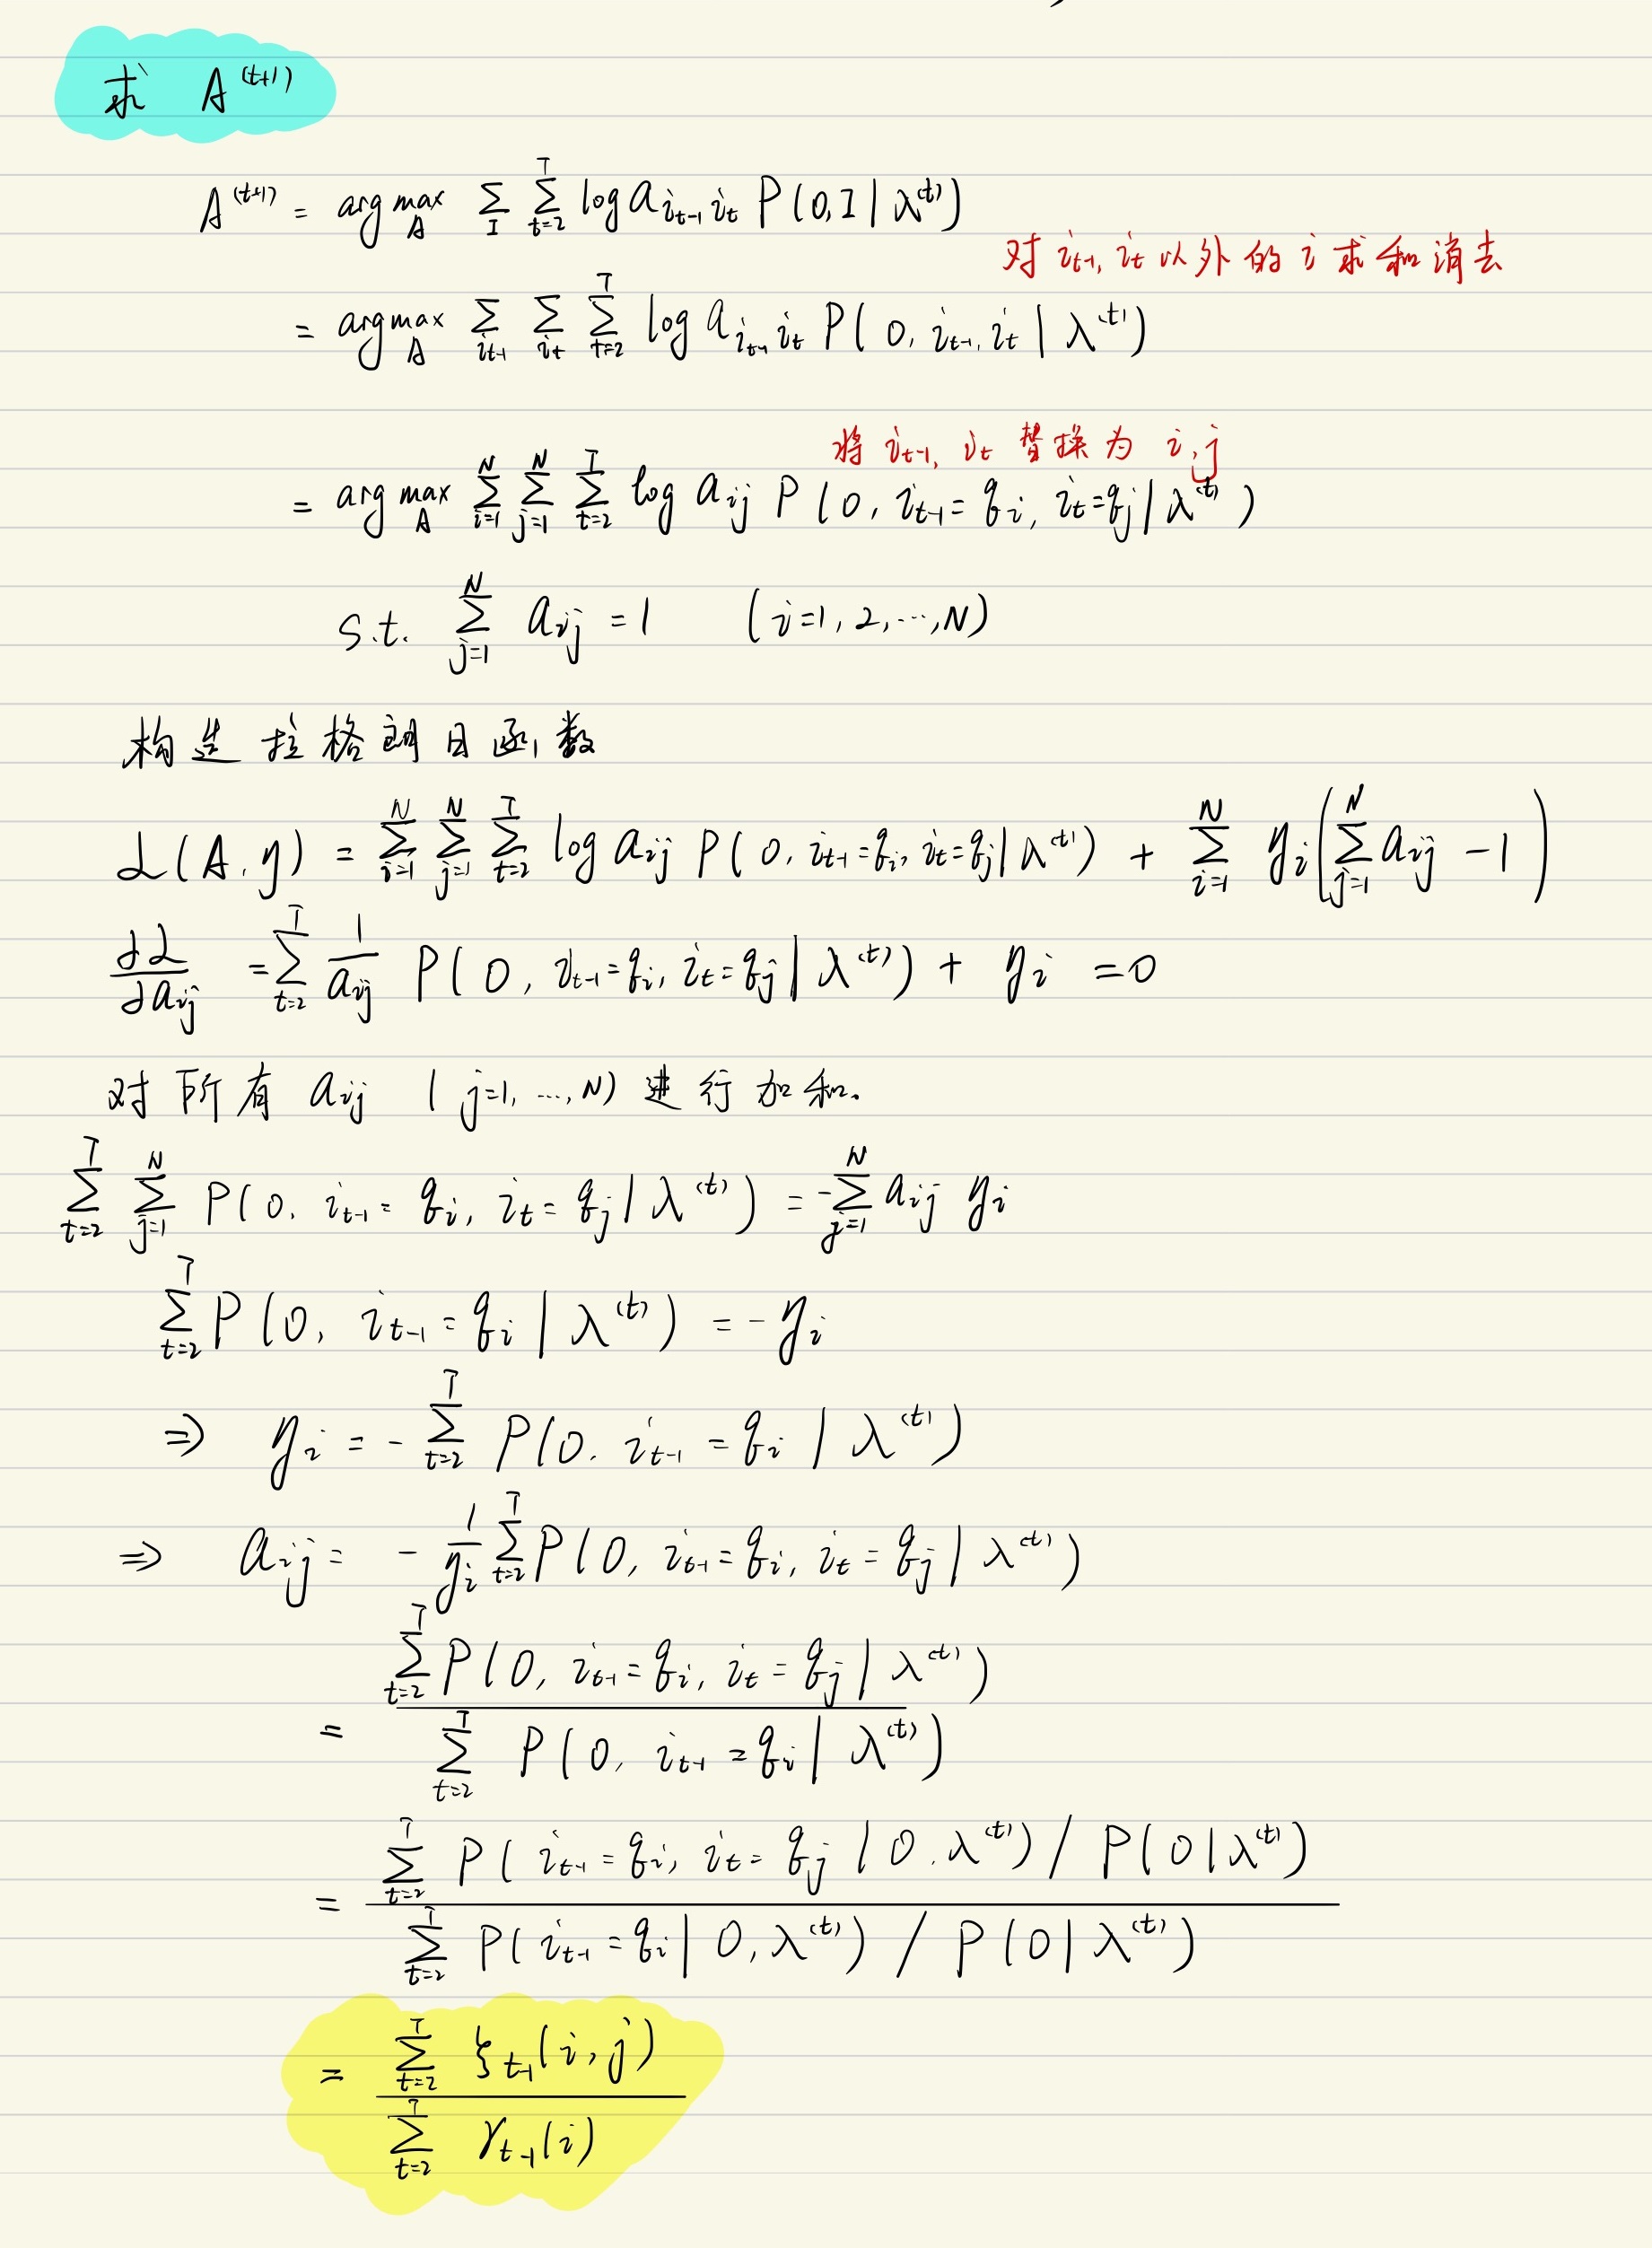 求 A^(t+1)
A^(t+1) = arg max_A Σ_I Σ_{t=2}^T log a_{i_{t-1} i_t} P(O,I|λ^(t))
对 i_{t-1}, i_t 以外的 i 求和消去
= arg max_A Σ_{i_{t-1}} Σ_{i_t} Σ_{t=2}^T log a_{i_{t-1} i_t} P(O, i_{t-1}, i_t | λ^(t))
将 i_{t-1}, i_t 替换为 i,j
= arg max_A Σ_{i=1}^N Σ_{j=1}^N Σ_{t=2}^T log a_{ij} P(O, i_{t-1}=q_i, i_t=q_j|λ^(t))
s.t. Σ_{j=1}^N a_{ij} = 1 (i=1,2,…,N)
构造拉格朗日函数
L(A,η) = Σ_{i=1}^N Σ_{j=1}^N Σ_{t=2}^T log a_{ij} P(O, i_{t-1}=q_i, i_t=q_j|λ^(t)) + Σ_{i=1}^N η_i(Σ_{j=1}^N a_{ij} - 1)
∂L/∂a_{ij} = Σ_{t=2}^T 1/a_{ij} P(O, i_{t-1}=q_i, i_t=q_j|λ^(t)) + η_i = 0
对所有 a_{ij} (j=1,…,N) 进行加和.
Σ_{t=2}^T Σ_{j=1}^N P(O, i_{t-1}=q_i, i_t=q_j|λ^(t)) = -Σ_{j=1}^N a_{ij} η_i
Σ_{t=2}^T P(O, i_{t-1}=q_i | λ^(t)) = -η_i
⇒ η_i = -Σ_{t=2}^T P(O, i_{t-1}=q_i | λ^(t))
⇒ a_{ij} = -1/η_i Σ_{t=2}^T P(O, i_{t-1}=q_i, i_t=q_j|λ^(t))
Σ_{t=2}^T P(O, i_{t-1}=q_i, i_t=q_j|λ^(t))
=
Σ_{t=2}^T P(O, i_{t-1}=q_i|λ^(t))
Σ_{t=2}^T P(i_{t-1}=q_i, i_t=q_j|O,λ^(t)) / P(O|λ^(t))
=
Σ_{t=2}^T P(i_{t-1}=q_i|O,λ^(t)) / P(O|λ^(t))
Σ_{t=2}^T ξ_{t-1}(i,j)
=
Σ_{t=2}^T γ_{t-1}(i)